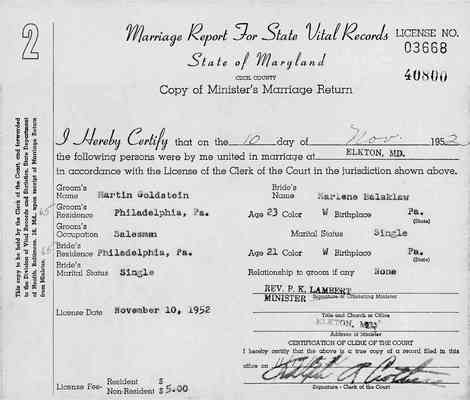 2
Marriage Report For State Vital Records
LICENSE NO.
03668
State of Maryland
CECIL COUNTY
40800
Copy of Minister's Marriage Return
I Hereby Certify that on the 10 day of Nov. 1952
the following persons were by me united in marriage at ELKTON, MD.
in accordance with the License of the Clerk of the Court in the jurisdiction shown above.
Groom's Name Martin Goldstein Bride's Name Marlene Balaklaw
Groom's Residence Philadelphia, Pa. Age 23 Color W Birthplace Pa.
(State)
Groom's Occupation Salesman Marital Status Single
Bride's Residence Philadelphia, Pa. Age 21 Color W Birthplace Pa.
(State)
Bride's Marital Status Single Relationship to groom if any None
REV. P. K. LAMBERT
MINISTER Signature of Officiating Minister
License Date November 10, 1952
Title and Church or Office
ELKTON, MD.
Address of Minister
CERTIFICATION OF CLERK OF THE COURT
I hereby certify that the above is a true copy of a record filed in this
office on
License Fee- Resident $
Non-Resident $ 5.00
Signature - Clerk of the Court
This copy to be held by the Clerk of the Court, and forwarded
to the Division of Vital Records and Statistics, State Department
of Health, Baltimore, 18, Md., upon receipt of Marriage Return
from Minister.